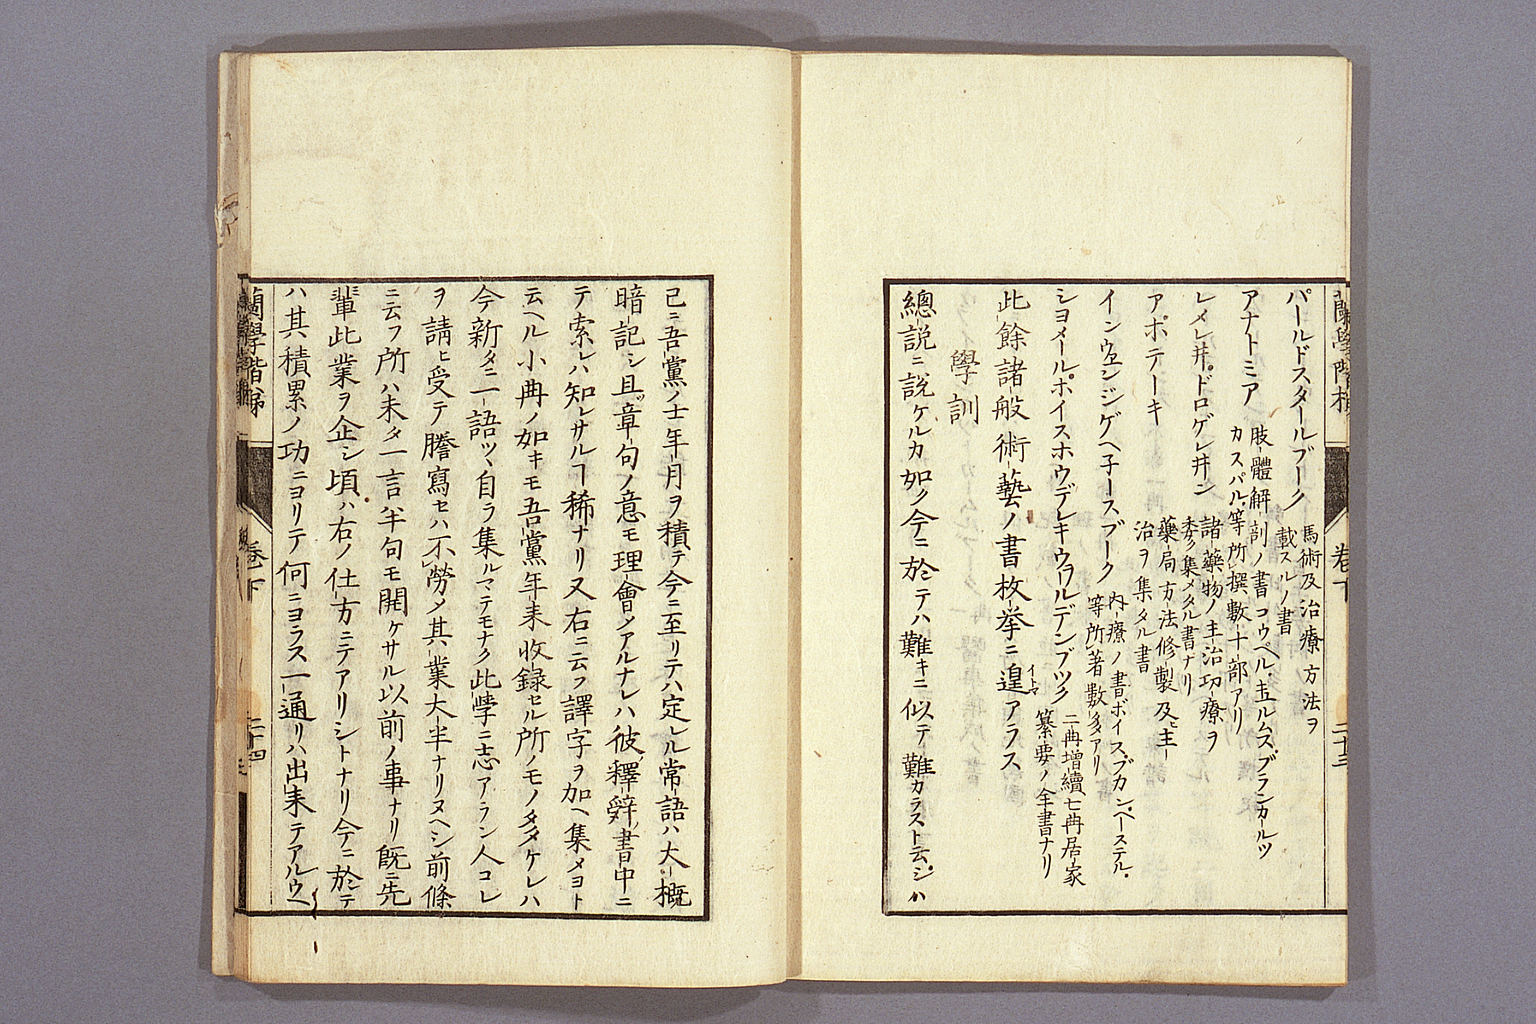 蘭學階梯
卷下
二十三
パールドスタールブーク
馬術及治療方法ヲ
載スルノ書
アナトミア
肢體解剖ノ書コウペル、主ルムス、ブランカールツ
カスパル等所撰數十部アリ
レメレ井、ドロゲレ井ン
諸藥物ノ主治功療ヲ
委ク集メタル書ナリ
アポテーキ
藥局方法修製及ヒ主
治ヲ集タル書
インウェンジゲヘ子ースブーク
内療ノ書ボイス、ブカン、ペーステル、
等所著數多アリ
シヨメールホイスホウデレキウヲールデンブック
二冊增續七冊居家
纂要ノ全書ナリ
此餘諸般術藝ノ書枚挙ニ遑アラス
イトマ
學訓
總説ニ説ケルカ如ク今ニ於テハ難キニ似テ難カラスト云シハ
己ニ吾黨ノ士年月ヲ積テ今ニ至リテハ定レル常語ハ大概
暗記シ且章句ノ意モ理會ノアルナレハ彼釋辭ノ書中ニ
テ索レハ知レサルヿ稀ナリ又右ニ云フ譯字ヲ加ヘ集メヨト
云ヘル小冊ノ如キモ吾黨年来收録セル所ノモノタタケレハ
今新タニ一語ツヽ自ラ集ルマテモナク此學ニ志アラン人コレ
ヲ請ヒ受テ謄寫セハ不勞メ其業大半ナリヌヘシ前條
ニ云フ所ハ未タ一言半句モ開ケサル以前ノ事ナリ既ニ先
輩此業ヲ企シ頃ハ右ノ仕方ニテアリシトナリ今ニ於テ
ハ其積累ノ功ニヨリテ何ニヨラス一通リハ出来テアルウヘ
蘭學階梯
卷下
二十四